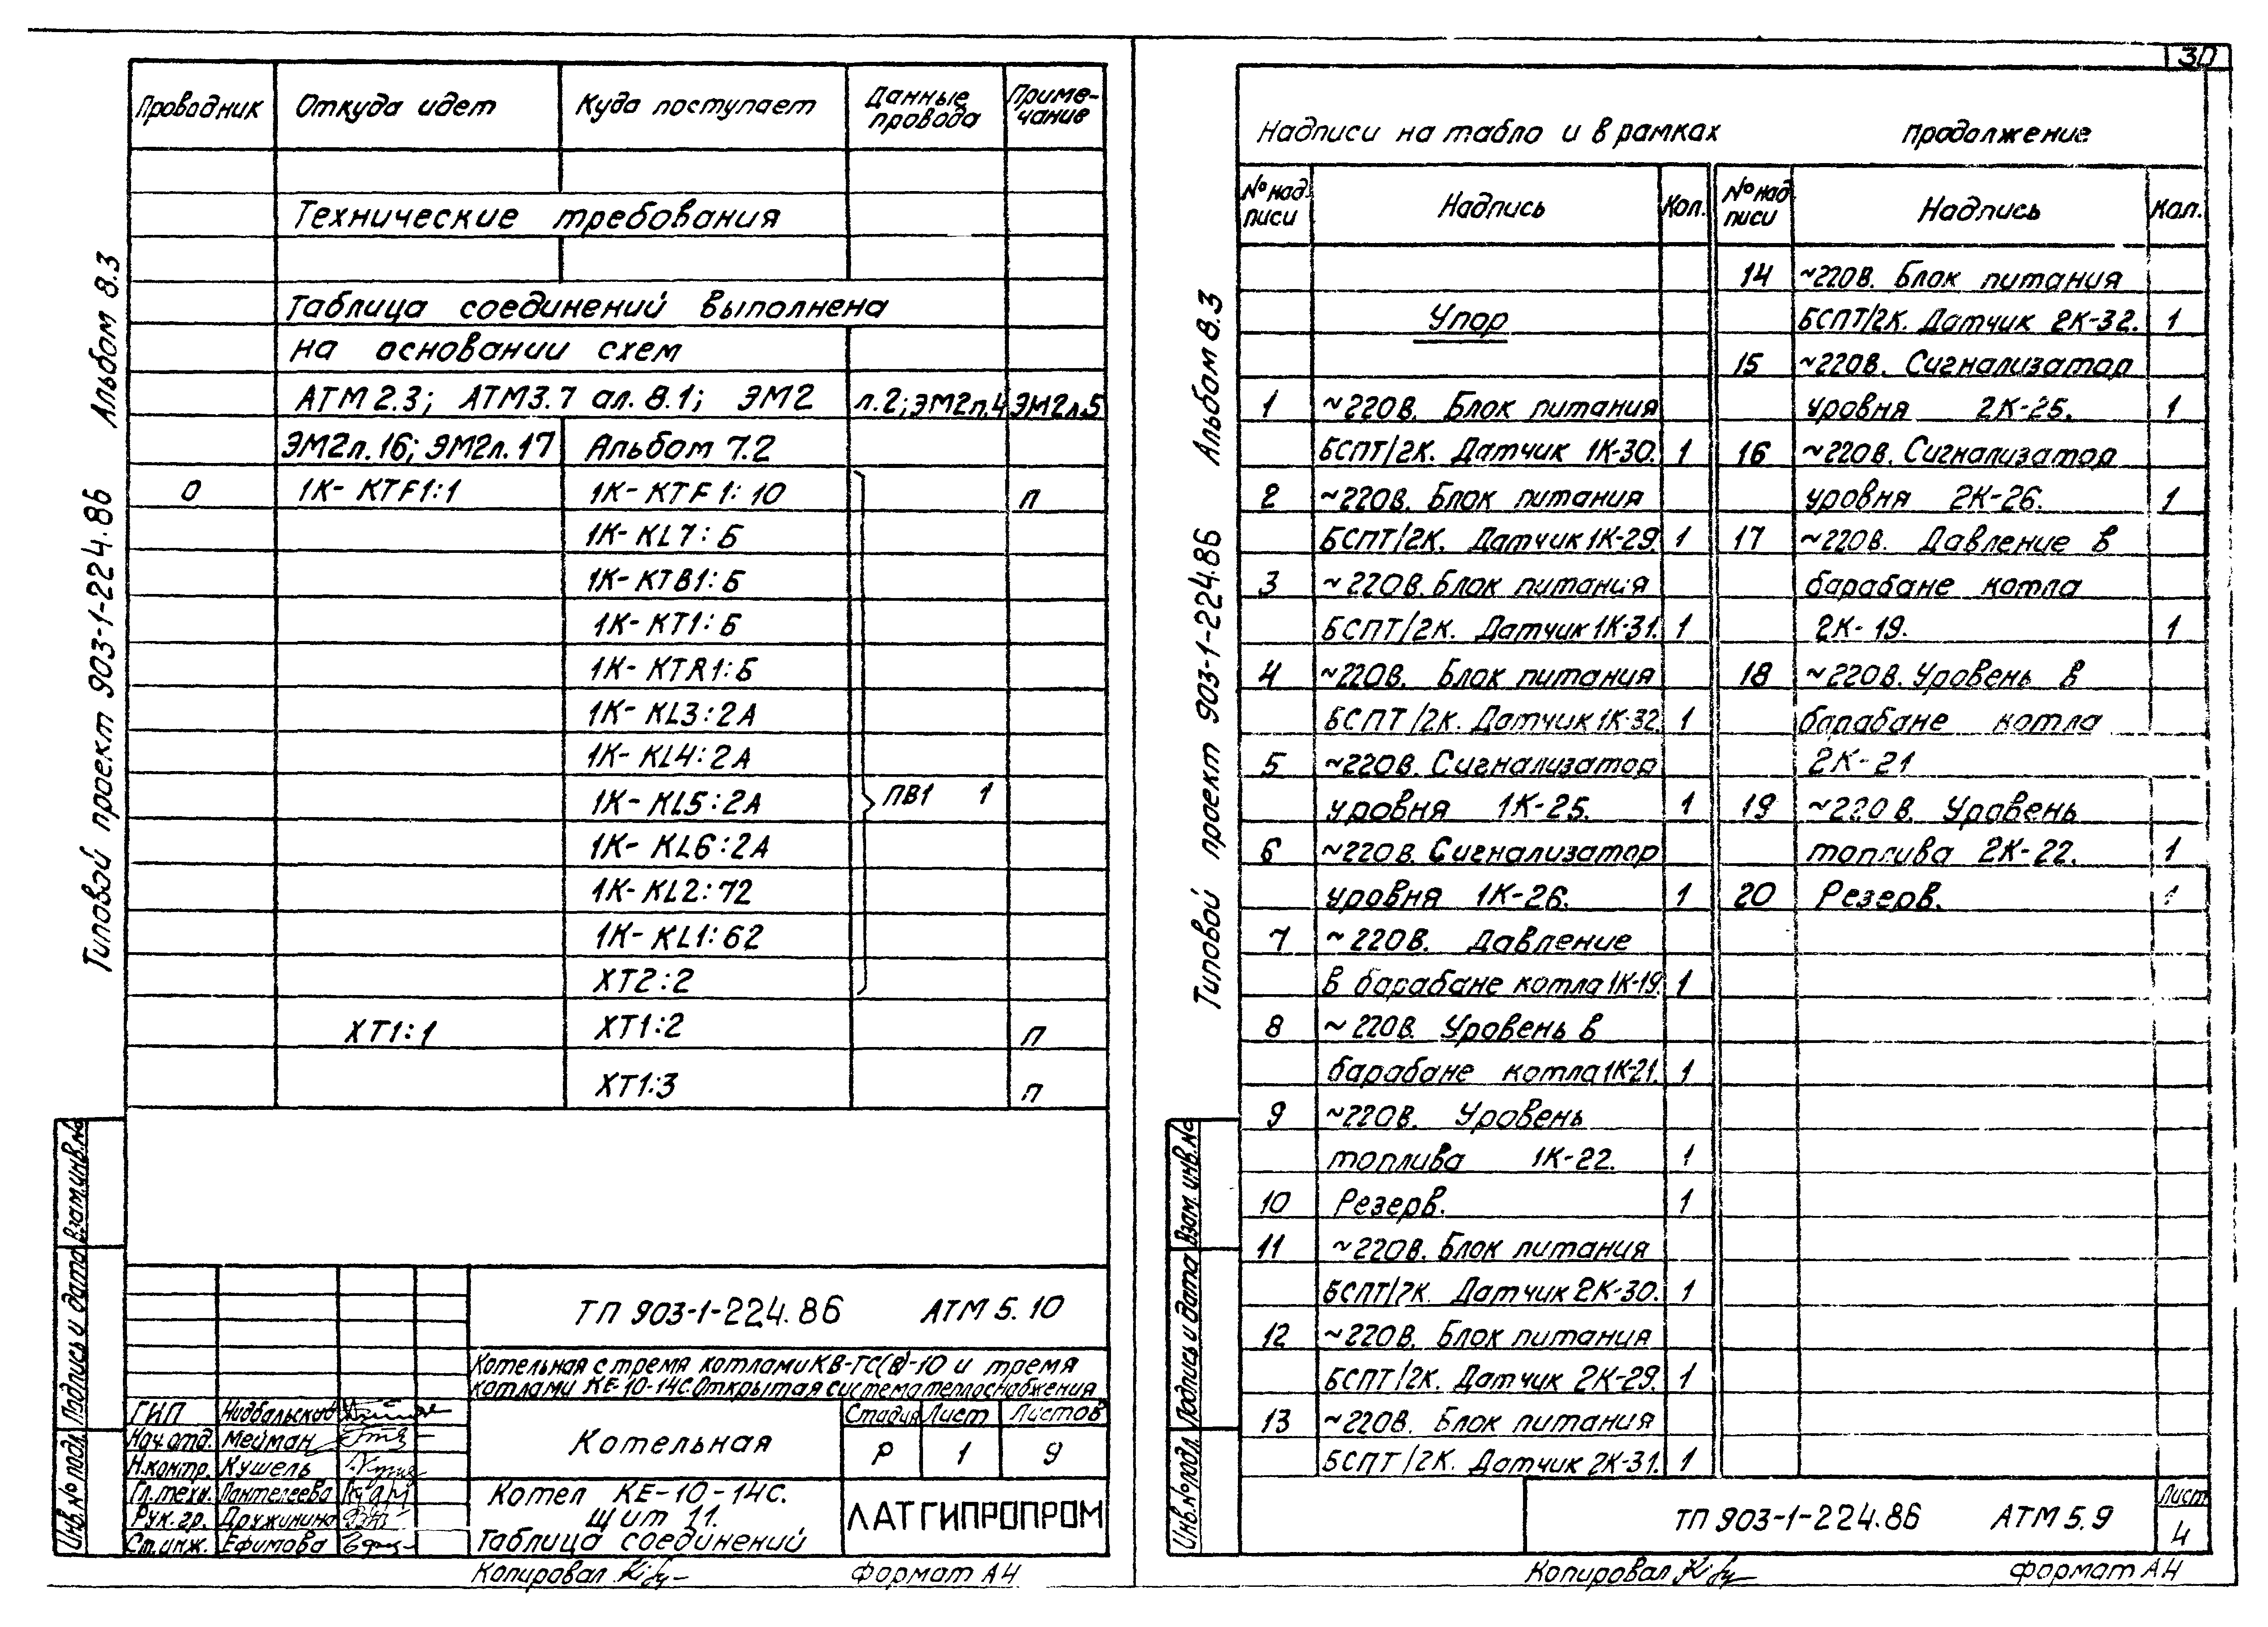 30
Типовой проект 903-1-224.86 Альбом 8.3
Проводник Откуда идет Куда поступает Данные провода Примечание
Технические требования
Таблица соединений выполнена
на основании схем
АТМ 2.3; АТМ3.7 ал. 8.1; ЭМ2 л.2; ЭМ2л.4 ЭМ2л.5
ЭМ2л.16; ЭМ2л.17 Альбом 7.2
0 1К-КТF1:1 1К-КТF1:10 П
1К-KL7:Б
1К-КТВ1:Б
1К-КТ1:Б
1К-КТR1:Б
1К-KL3:2А
1К-KL4:2А
1К-KL5:2А ПВ1 1
1К-KL6:2А
1К-KL2:72
1К-KL1:62
ХТ2:2
ХТ1:1 ХТ1:2 П
ХТ1:3 П
Взам.инв.№
Подпись и дата
Инв.№ подл.
ТП 903-1-224.86 АТМ 5.10
Котельная с тремя котлами КВ-ТС(в)-10 и тремя
котлами КЕ-10-14С. Открытая система теплоснабжения
ГИП Нидбальский
Нач.отд. Мейман
Н.контр. Кушель
Гл.техн. Пантелеева
Рук.гр. Дружинина
Ст.инж. Ефимова
Котельная
Стадия Лист Листов
Р 1 9
Котел КЕ-10-14С.
Щит 11.
Таблица соединений
ЛАТГИПРОПРОМ
Копировал
Формат А4
Типовой проект 903-1-224.86 Альбом 8.3
Надписи на табло и в рамках продолжение
№ надписи Надпись Кол. № надписи Надпись Кол.
Упор
1 ~220В. Блок питания
БСПТ/2К. Датчик 1К-30. 1
2 ~220В. Блок питания
БСПТ/2К. Датчик 1К-29. 1
3 ~220В. Блок питания
БСПТ/2К. Датчик 1К-31. 1
4 ~220В. Блок питания
БСПТ/2К. Датчик 1К-32. 1
5 ~220В. Сигнализатор
уровня 1К-25. 1
6 ~220В. Сигнализатор
уровня 1К-26. 1
7 ~220В. Давление
в барабане котла 1К-19. 1
8 ~220В. Уровень в
барабане котла 1К-21. 1
9 ~220В. Уровень
топлива 1К-22. 1
10 Резерв. 1
11 ~220В. Блок питания
БСПТ/2К. Датчик 2К-30. 1
12 ~220В. Блок питания
БСПТ/2К. Датчик 2К-29. 1
13 ~220В. Блок питания
БСПТ/2К. Датчик 2К-31. 1
14 ~220В. Блок питания
БСПТ/2К. Датчик 2К-32. 1
15 ~220В. Сигнализатор
уровня 2К-25. 1
16 ~220В. Сигнализатор
уровня 2К-26. 1
17 ~220В. Давление в
барабане котла
2К-19. 1
18 ~220В. Уровень в
барабане котла
2К-21
19 ~220В. Уровень
топлива 2К-22. 1
20 Резерв. 1
Взам. инв.№
Подпись и дата
Инв.№ подл.
ТП 903-1-224.86 АТМ 5.9
Лист
4
Копировал
Формат А4